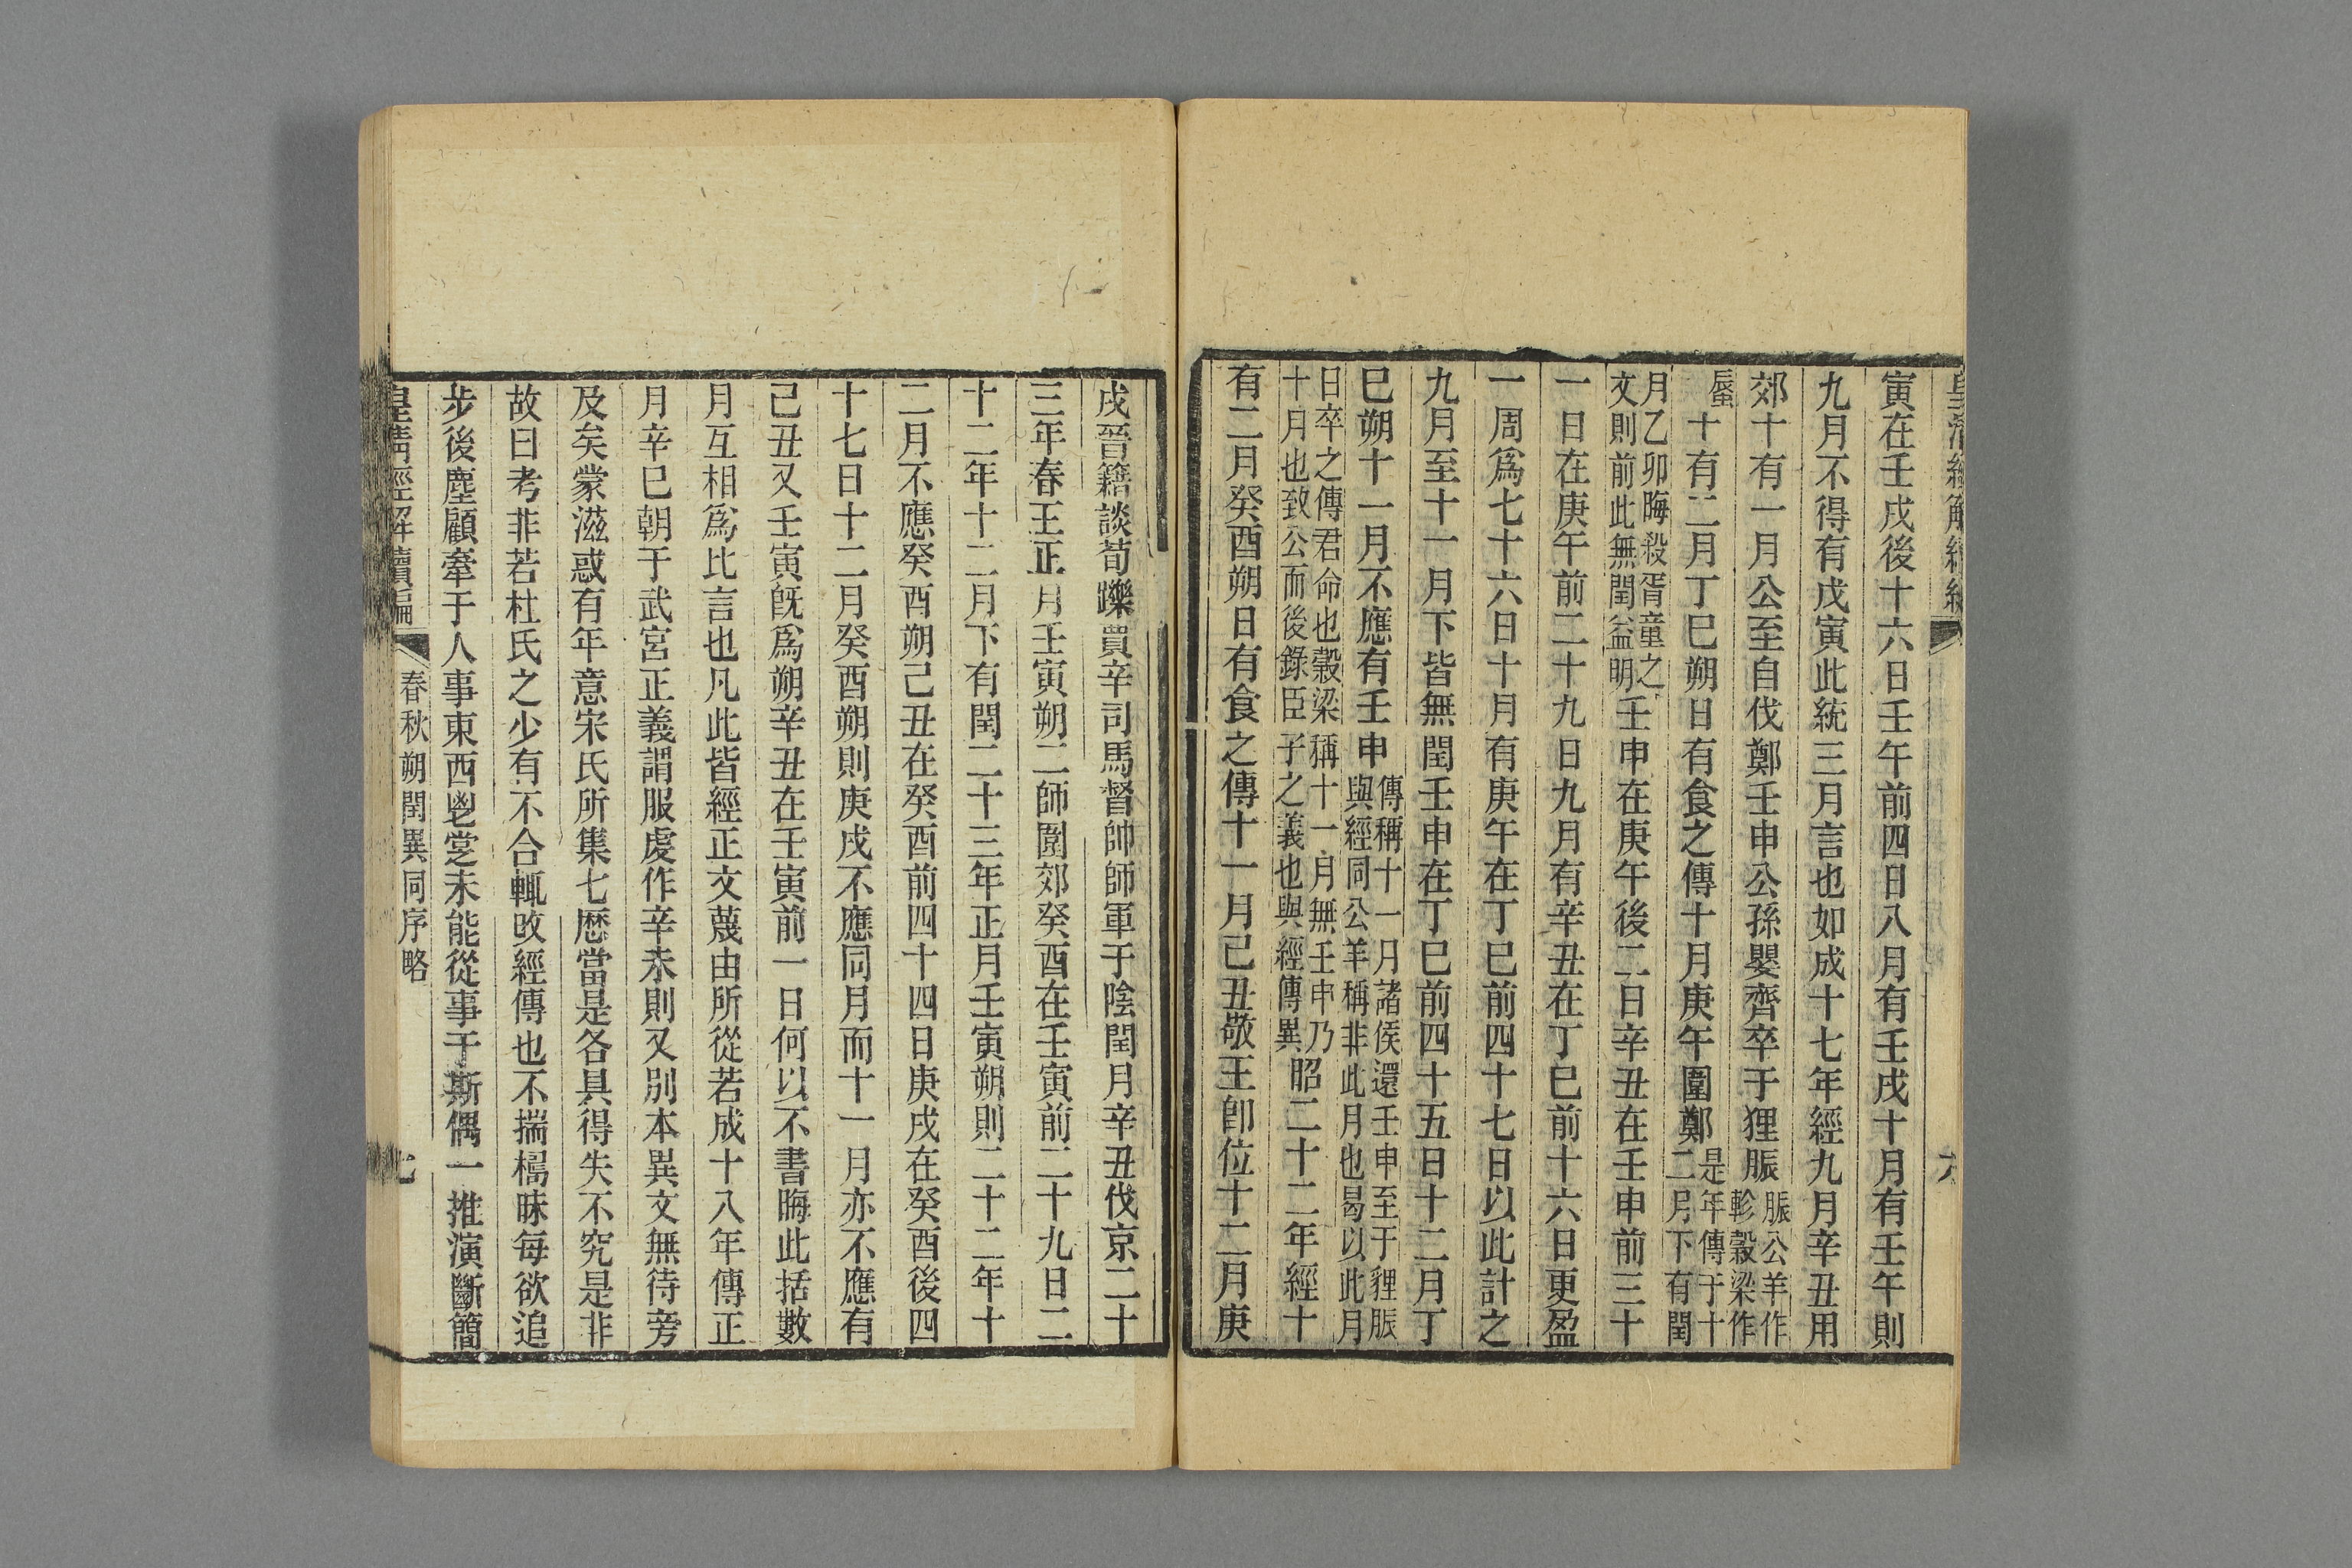 皇清經解續編
六
寅在壬戌後十六日壬午前四日八月有壬戌十月有壬午則
九月不得有戊寅此統三月言也如成十七年經九月辛丑用
郊十有一月公至自伐鄭壬申公孫嬰齊卒于狸脤脤公羊作軫穀梁作
蜃十有二月丁巳朔日有食之傳十月庚午圍鄭是年傳于十二月下有閏
月乙卯晦殺胥童之文則前此無閏益明壬申在庚午後二日辛丑在壬申前三十
一日在庚午前二十九日九月有辛丑在丁巳前十六日更盈
一周爲七十六日十月有庚午在丁巳前四十七日以此計之
九月至十一月下皆無閏壬申在丁巳前四十五日十二月丁
巳朔十一月不應有壬申傳稱十一月諸侯還壬申至于狸脤與經同公羊稱非此月也曷以此月
日卒之傳君命也穀梁稱十一月無壬申乃十月也致公而後錄臣子之義也與經傳異昭二十二年經十
有二月癸酉朔日有食之傳十一月己丑敬王卽位十二月庚
戌晉籍談荀躒賈辛司馬督帥師軍于陰閏月辛丑伐京二十
三年春王正月壬寅朔二師圍郊癸酉在壬寅前二十九日二
十二年十二月下有閏二十三年正月壬寅朔則二十二年十
二月不應癸酉朔己丑在癸酉前四十四日庚戌在癸酉後四
十七日十二月癸酉朔則庚戌不應同月而十一月亦不應有
己丑又壬寅旣爲朔辛丑在壬寅前一日何以不書晦此括數
月互相爲比言也凡此皆經正文蔑由所從若成十八年傳正
月辛巳朝于武宮正義謂服虔作辛未則又別本異文無待旁
及矣蒙滋惑有年意宋氏所集七厤當是各具得失不究是非
故曰考非若杜氏之少有不合輒改經傳也不揣檮昧每欲追
步後塵顧牽于人事東西鬯堂未能從事于斯偶一推演斷簡
皇清經解續編
春秋朔閏異同序略
七